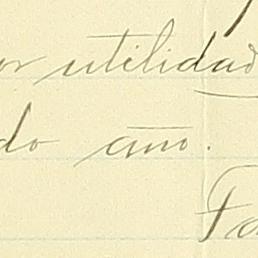 or utilidad
do año.
Fa